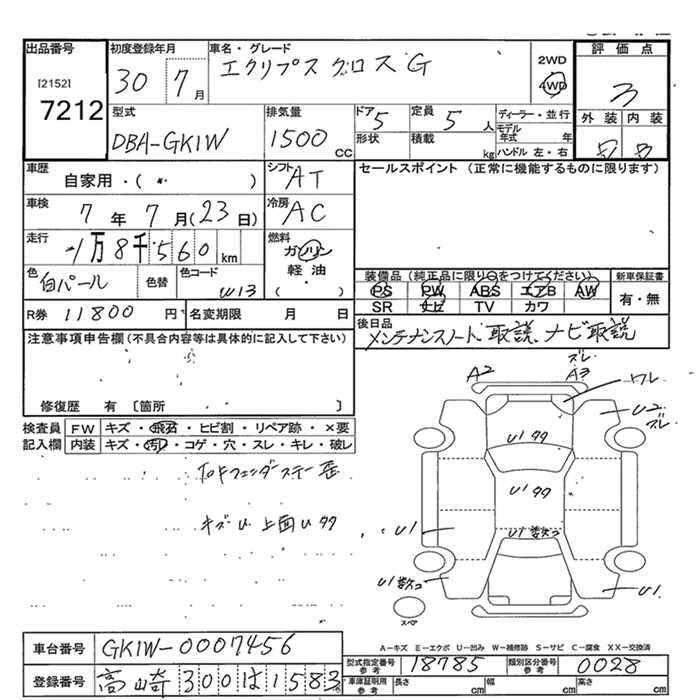 出品番号
[2152]
7212
初度登録年月
30 7月
車名・グレード
エクリプス クロス G
2WD
4WD
評価点
3
外装 内装
型式
DBA-GK1W
排気量
1500 CC
ドア 5
形状
定員 5 人
積載 kg
ディーラー・並行
モデル年式 年
ハンドル 左・右
車歴
自家用・( )
シフト AT
セールスポイント (正常に機能するものに限ります)
車検
7年 7月(23日)
冷房 AC
走行
1万8千560km
燃料
ガソリン
軽油
( )
色
白パール
色替
色コード
W13
装備品(純正品に限り○をつけてください)
PS PW ABS エアB AW
SR ナビ TV カワ
新車保証書
有・無
R券 11800円
名変期限 月 日
後日品
メンテナンスノート、取説、ナビ取説
注意事項申告欄(不具合内容等は具体的に記入して下さい)
修復歴 有 〔箇所 〕
検査員記入欄
FW キズ・飛石・ヒビ割・リペア跡・×要
内装 キズ・汚れ・コゲ・穴・スレ・キレ・破レ
キズ U 上面 U タタ
A2
A3
ズレ
ワレ
U2
ズレ
U1 タタ
U1 タタ
U1 数コ
U1
U1 数コ
U1
スペア
A-キズ E-エクボ U-凹み W-補修跡 S-サビ C-腐食 XX-交換済
車台番号 GK1W-0007456
登録番号 高崎 300 は 1583
型式指定番号参考 18785
類別区分番号参考 0028
車庫証明用参考 長さ cm 幅 cm 高さ cm